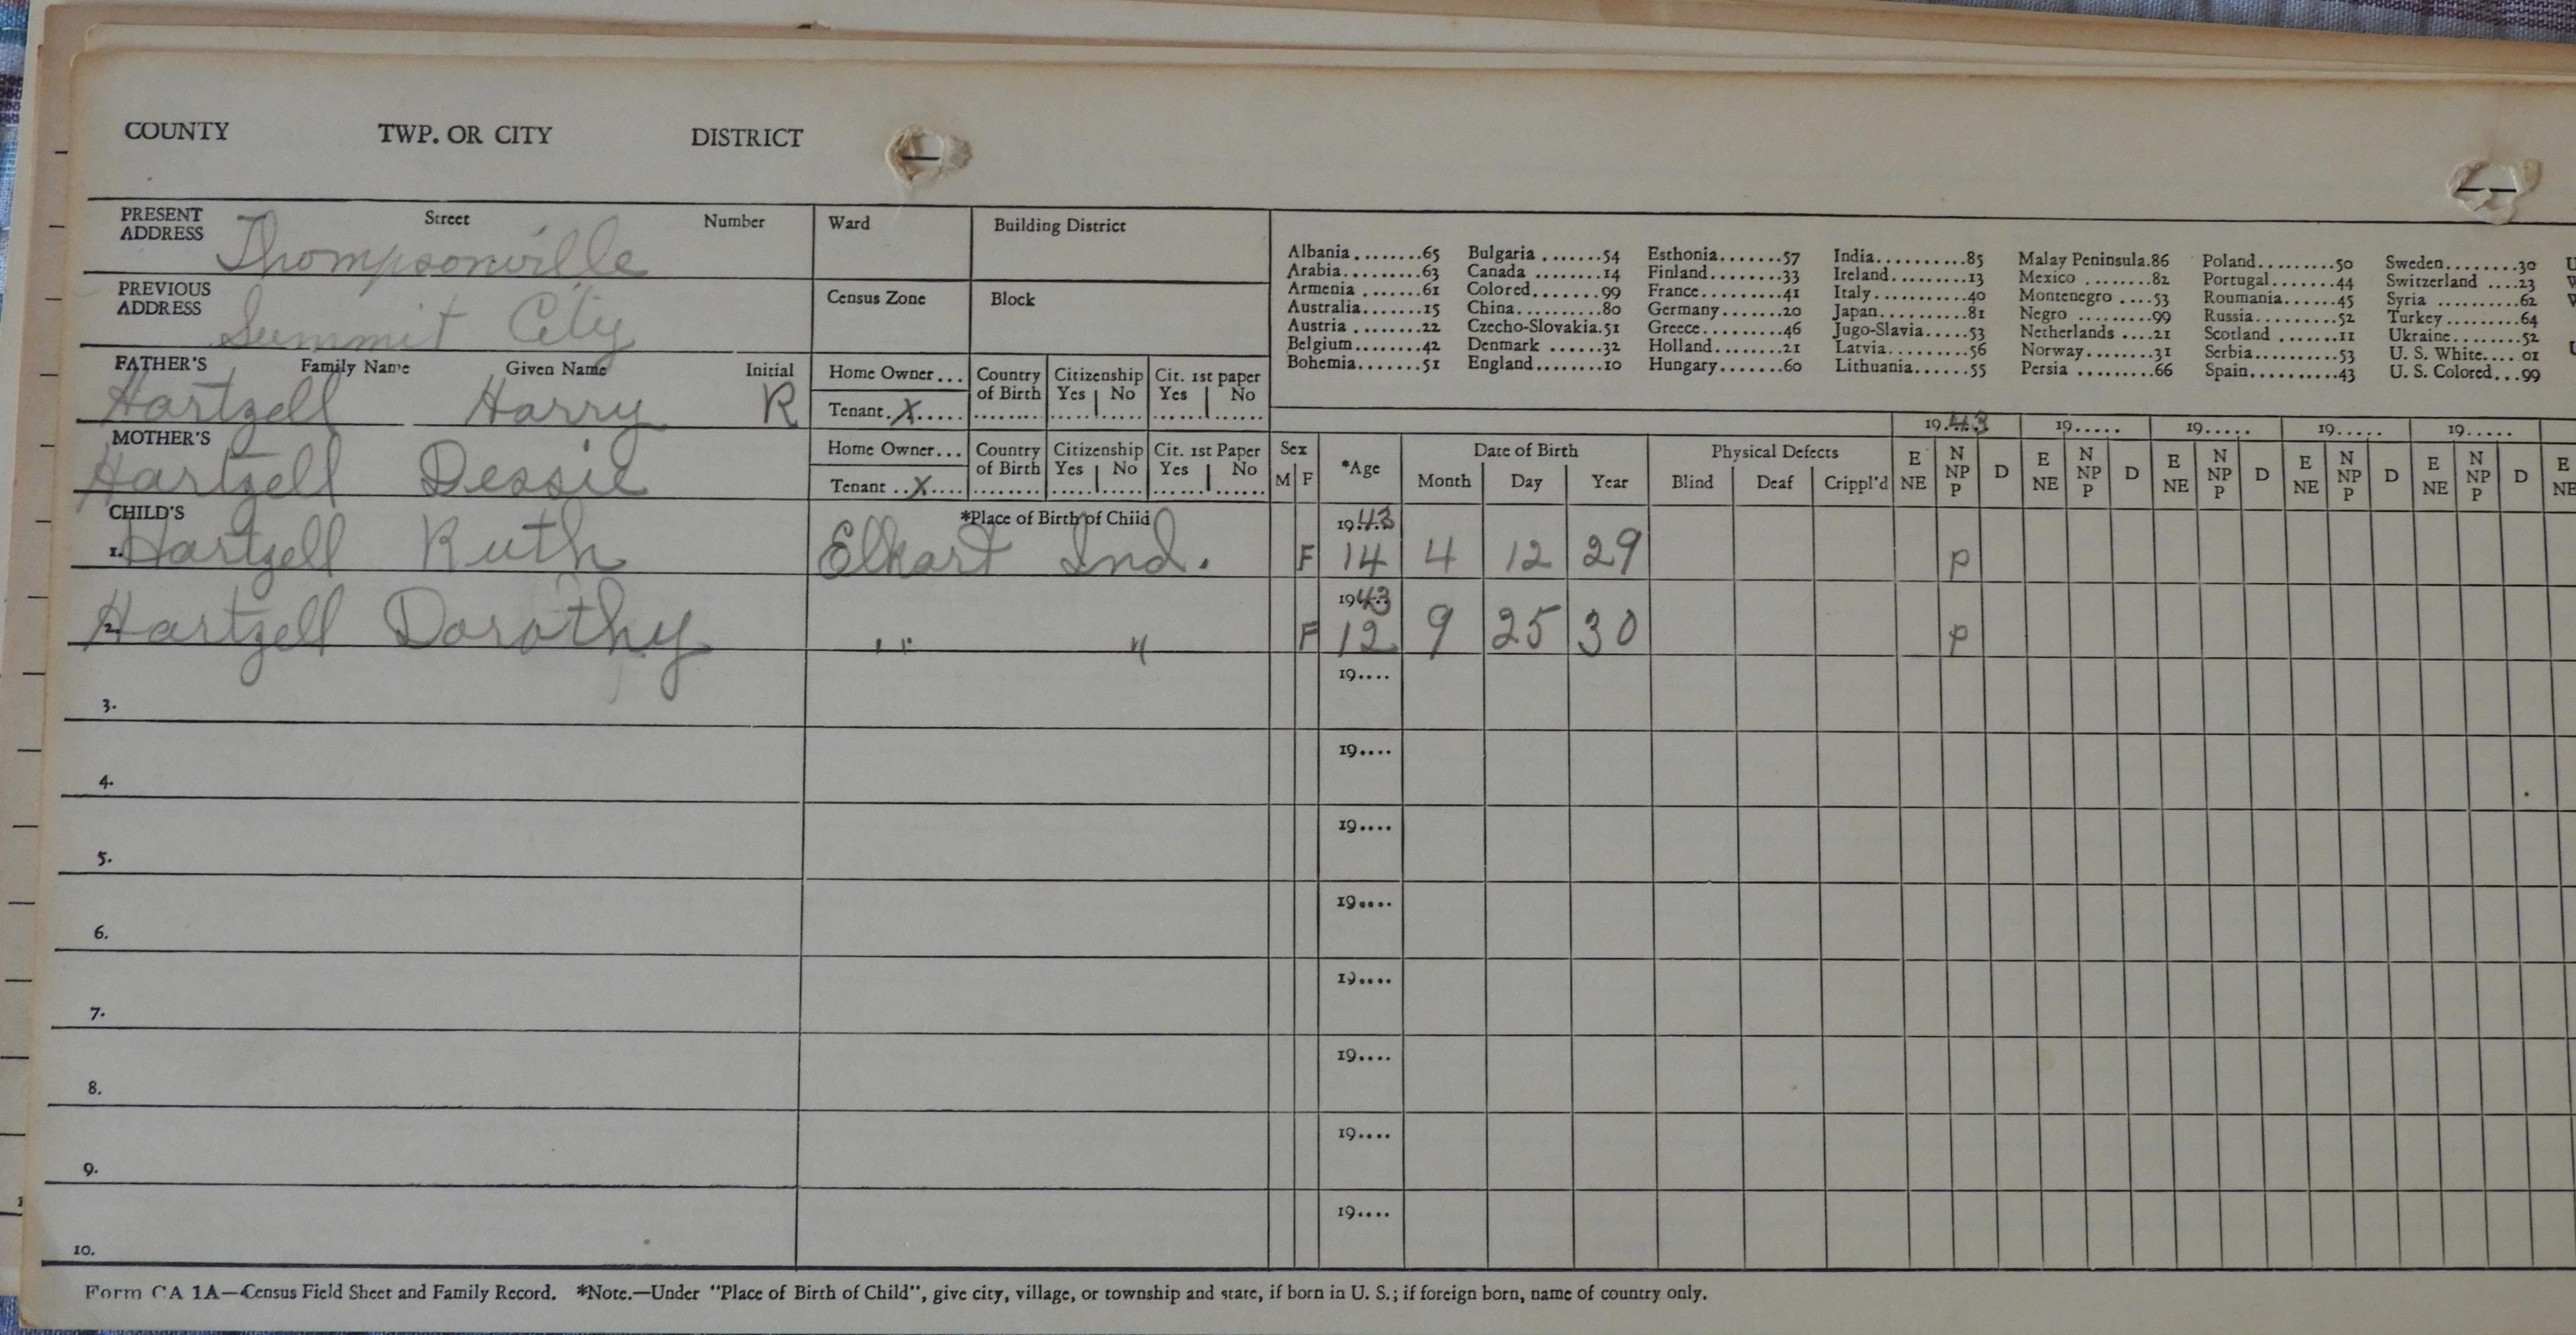 COUNTY TWP. OR CITY DISTRICT
PRESENT ADDRESS Street Number Ward Building District
Thompsonville
Albania........65 Bulgaria.......54 Esthonia.......57 India..........85 Malay Peninsula.86 Poland.........50 Sweden........30
Arabia.........63 Canada ........14 Finland........33 Ireland........13 Mexico ........82 Portugal.......44 Switzerland ....23
Armenia .......61 Colored........99 France.........41 Italy..........40 Montenegro ....53 Roumania......45 Syria .........62
Australia......15 China..........80 Germany.......20 Japan..........81 Negro .........99 Russia.........52 Turkey........64
Austria .......22 Czecho-Slovakia.51 Greece.........46 Jugo-Slavia.....53 Netherlands ....21 Scotland .......11 Ukraine........52
Belgium.......42 Denmark ......32 Holland........21 Latvia.........56 Norway........31 Serbia.........53 U. S. White....01
Bohemia.......51 England........10 Hungary.......60 Lithuania......55 Persia .........66 Spain..........43 U. S. Colored...99
PREVIOUS ADDRESS Census Zone Block
Summit City
FATHER'S Family Name Given Name Initial Home Owner... Country of Birth Citizenship Yes No Cit. 1st paper Yes No
Hartzell Harry R Tenant.X.....
19.43 19..... 19..... 19..... 19.....
MOTHER'S Home Owner... Country of Birth Citizenship Yes No Cit. 1st Paper Yes No Sex M F *Age Date of Birth Month Day Year Physical Defects Blind Deaf Crippl'd E NE N NP P D E NE N NP P D E NE N NP P D E NE N NP P D E NE N NP P D E NE
Hartzell Dessie Tenant..X....
CHILD'S *Place of Birth of Child 19.43
1. Hartzell Ruth Elkart Ind. F 14 4 12 29 P
1943
2. Hartzell Dorothy " " " F 12 9 25 30 P
19....
3.
19....
4.
19....
5.
19....
6.
19....
7.
19....
8.
19....
9.
19....
10.
Form CA 1A—Census Field Sheet and Family Record. *Note.—Under "Place of Birth of Child", give city, village, or township and state, if born in U. S.; if foreign born, name of country only.